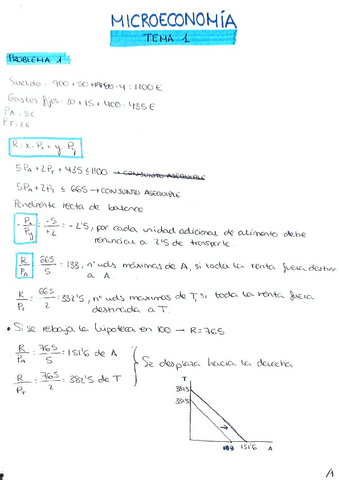 MICROECONOMÍA
TEMA 1
PROBLEMA 1
Sueldo: 900 + 50 · 4 = 1100 €
Gastos fijos: 20 + 15 + 400 = 435 €
PA = 5€
PT = 2€
R = x · Px + y · Py
5PA + 2PT + 435 ≤ 1100 → CONJUNTO ASEQUIBLE
5PA + 2PT ≤ 665 → CONJUNTO ASEQUIBLE
Pendiente recta de balance
- Px/Py = -5/+2 = -2'5, por cada unidad adicional de alimento debe
renunciar a 2'5 de transporte.
R/PA = 665/5 = 133, nº uds máximas de A, si toda la renta fuera destina
a A.
R/PT = 665/2 = 332'5, nº uds maximas de T, si toda la renta fuera
destinada a T.
• Si se rebaja la hipoteca en 100 → R = 765
R/PA = 765/5 = 151'6 de A
Se desplaza hacia la derecha
R/PT = 765/2 = 382'5 de T
T
382'5
332'5
133 151'6 A
/1